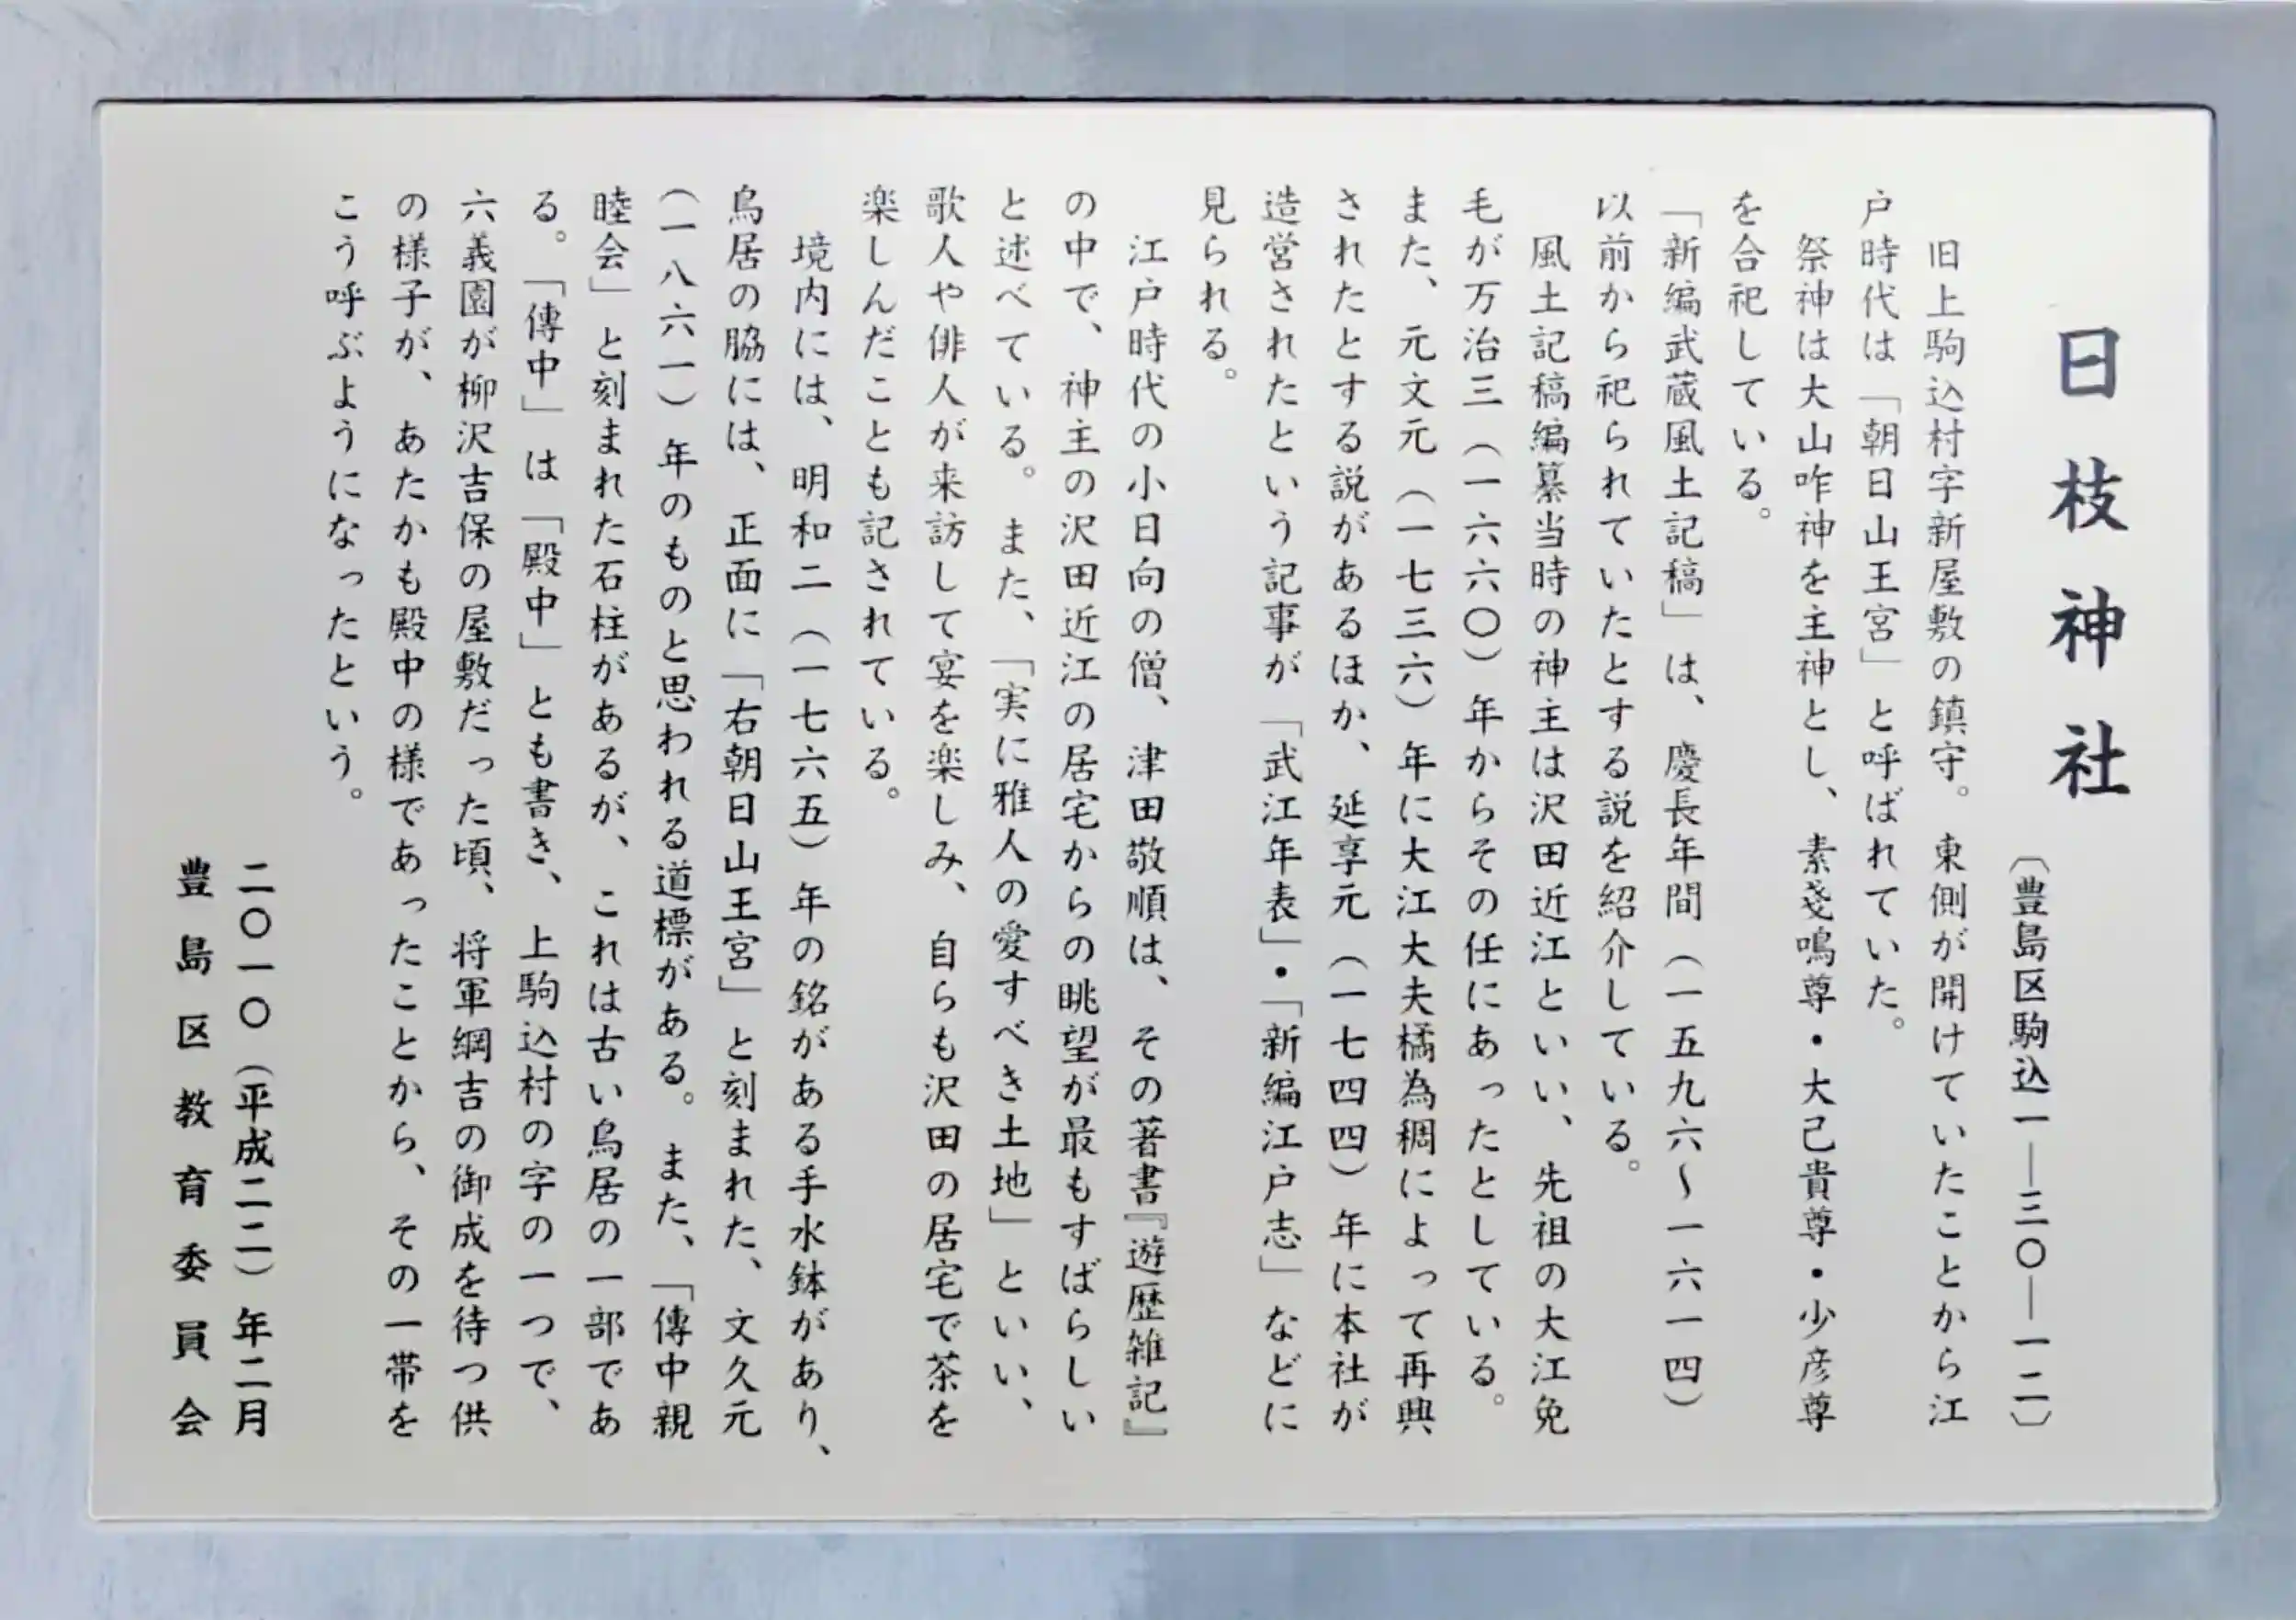 日枝神社
〔豊島区駒込一―三〇―一二〕
旧上駒込村字新屋敷の鎮守。東側が開けていたことから江
戸時代は「朝日山王宮」と呼ばれていた。
祭神は大山咋神を主神とし、素戔鳴尊・大己貴尊・少彦尊
を合祀している。
「新編武蔵風土記稿」は、慶長年間（一五九六〜一六一四）
以前から祀られていたとする説を紹介している。
風土記稿編纂当時の神主は沢田近江といい、先祖の大江免
毛が万治三（一六六〇）年からその任にあったとしている。
また、元文元（一七三六）年に大江大夫橘為稠によって再興
されたとする説があるほか、延享元（一七四四）年に本社が
造営されたという記事が「武江年表」・「新編江戸志」などに
見られる。
江戸時代の小日向の僧、津田敬順は、その著書『遊歴雑記』
の中で、神主の沢田近江の居宅からの眺望が最もすばらしい
と述べている。また、「実に雅人の愛すべき土地」といい、
歌人や俳人が来訪して宴を楽しみ、自らも沢田の居宅で茶を
楽しんだことも記されている。
境内には、明和二（一七六五）年の銘がある手水鉢があり、
鳥居の脇には、正面に「右朝日山王宮」と刻まれた、文久元
（一八六一）年のものと思われる道標がある。また、「傳中親
睦会」と刻まれた石柱があるが、これは古い鳥居の一部であ
る。「傳中」は「殿中」とも書き、上駒込村の字の一つで、
六義園が柳沢吉保の屋敷だった頃、将軍綱吉の御成を待つ供
の様子が、あたかも殿中の様であったことから、その一帯を
こう呼ぶようになったという。
二〇一〇（平成二二）年二月
豊島区教育委員会